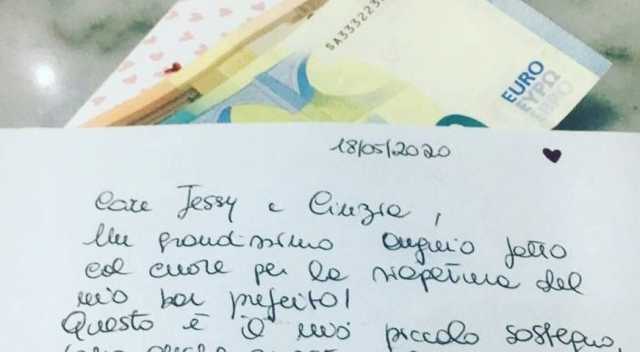 SA33323
EURO
ΕΥΡΩ
ЕВРО
18/05/2020
Care Jessy e Cinzia,
Un grandissimo augurio fatto
col cuore per la riapertura del
mio bar preferito!
Questo è il mio piccolo sostegno,